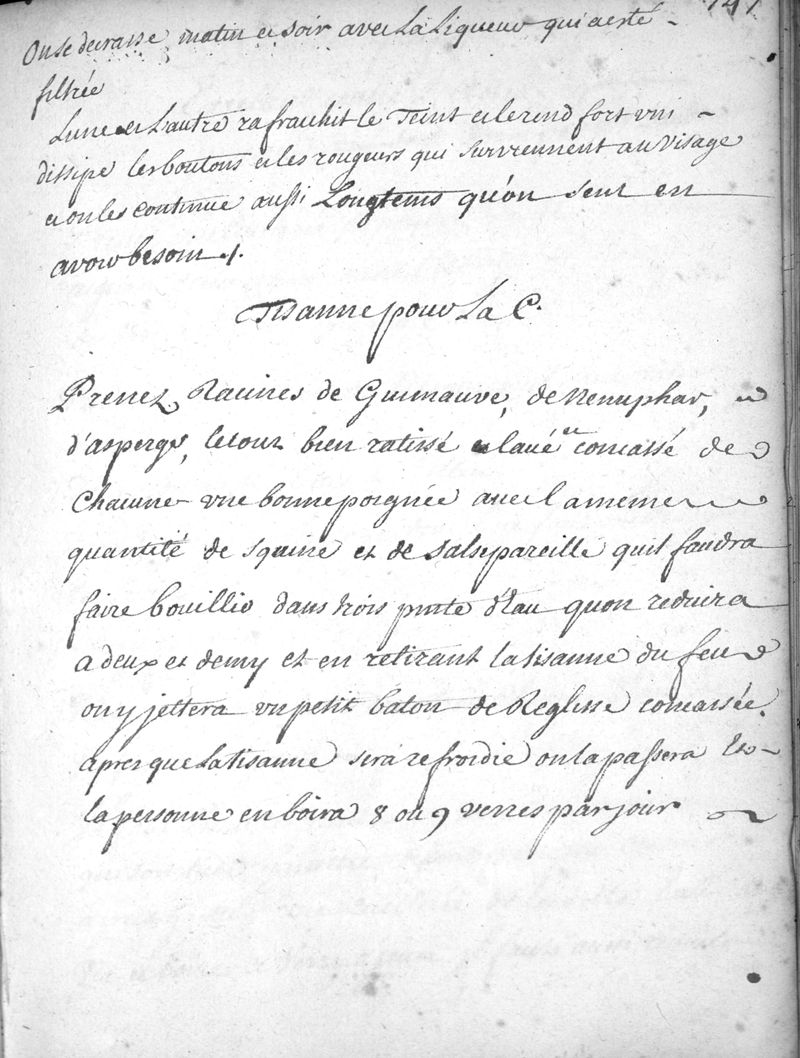 141
On se decrasse matin et soir avec La Liqueur qui a esté
filtrée
L'une et L'autre rafraichit le Teint et le rend fort uni
dissipe les boutons et les rougeurs qui surviennent au visage
et on les continue aussi Longtems qu'on sent en
avoir besoin ./.
Tisanne pour La C.
Prenez Racines de Guimauve, de Nenuphar,
d'asperge, le tout bien ratissé et lavé et concassé de
Chacune une bonne poignée avec la meme
quantité de squine et de salsepareille quil faudra
faire bouillir dans trois pinte d'Eau quon reduira
a deux et demy et en retirant la tisanne du feu
on y jettera un petit baton de Reglisse concassée.
apres que La tisanne sera refroidie on la passera Et
la personne en boira 8 ou 9 verres par jour